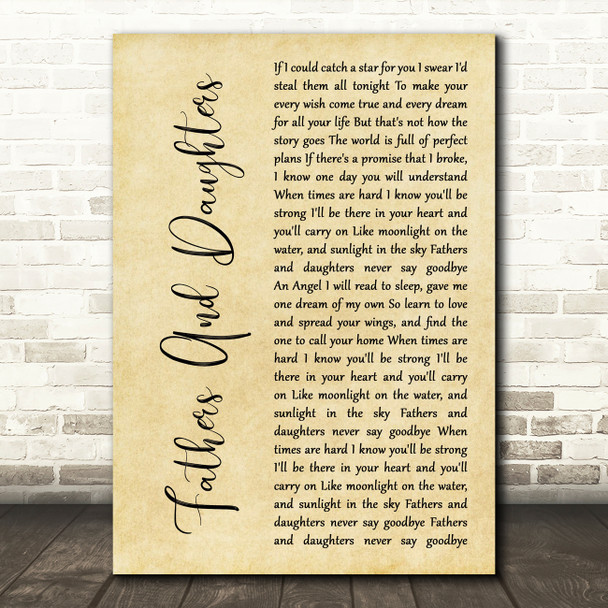 Fathers And Daughters
If I could catch a star for you I swear I'd
steal them all tonight To make your
every wish come true and every dream
for all your life But that's not how the
story goes The world is full of perfect
plans If there's a promise that I broke,
I know one day you will understand
When times are hard I know you'll be
strong I'll be there in your heart and
you'll carry on Like moonlight on the
water, and sunlight in the sky Fathers
and daughters never say goodbye
An Angel I will read to sleep, gave me
one dream of my own So learn to love
and spread your wings, and find the
one to call your home When times are
hard I know you'll be strong I'll be
there in your heart and you'll carry
on Like moonlight on the water, and
sunlight in the sky Fathers and
daughters never say goodbye When
times are hard I know you'll be strong
I'll be there in your heart and you'll
carry on Like moonlight on the water,
and sunlight in the sky Fathers and
daughters never say goodbye Fathers
and daughters never say goodbye